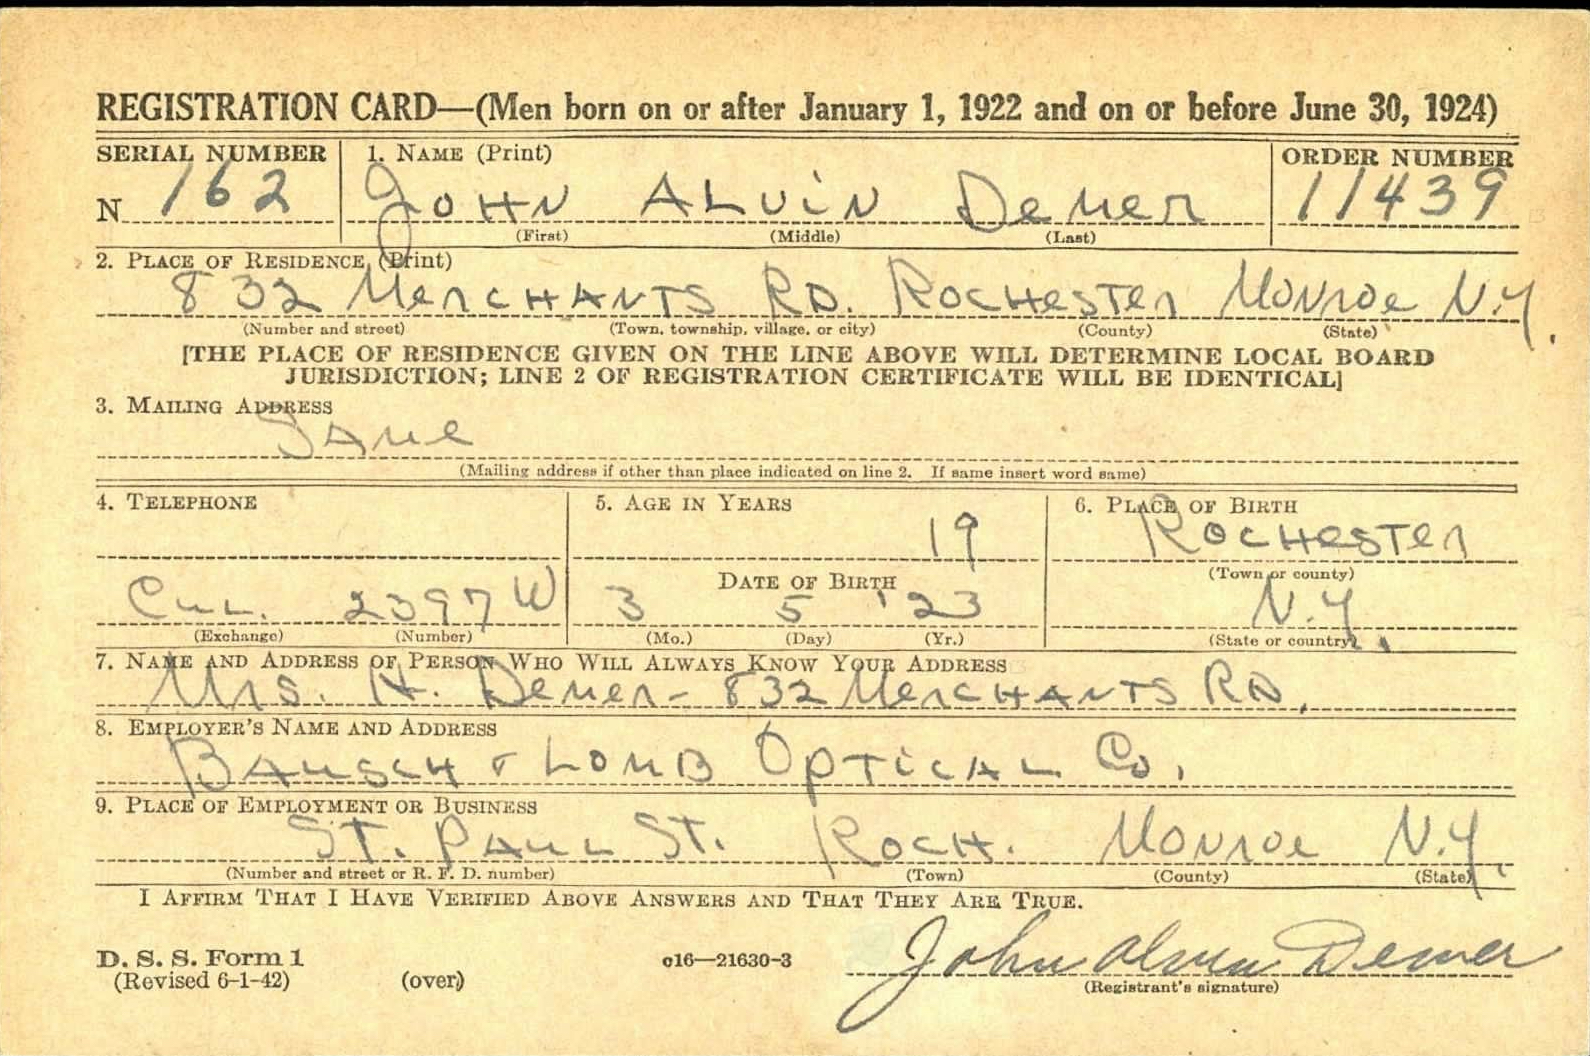 REGISTRATION CARD—(Men born on or after January 1, 1922 and on or before June 30, 1924)
SERIAL NUMBER 1. NAME (Print) ORDER NUMBER
N 162 JOHN ALViN DeMer 11439
(First) (Middle) (Last)
2. PLACE OF RESIDENCE (Print)
832 MerCHANTS RD. ROCHeSTer MONroe N.Y.
(Number and street) (Town, township, village, or city) (County) (State)
[THE PLACE OF RESIDENCE GIVEN ON THE LINE ABOVE WILL DETERMINE LOCAL BOARD
JURISDICTION; LINE 2 OF REGISTRATION CERTIFICATE WILL BE IDENTICAL]
3. MAILING ADDRESS
SAMe
(Mailing address if other than place indicated on line 2. If same insert word same)
4. TELEPHONE 5. AGE IN YEARS 6. PLACE OF BIRTH
19 ROCHeSTer
DATE OF BIRTH (Town or county)
CUL. 2397W 3 5 '23 N.Y.
(Exchange) (Number) (Mo.) (Day) (Yr.) (State or country)
7. NAME AND ADDRESS OF PERSON WHO WILL ALWAYS KNOW YOUR ADDRESS
Mrs. H. DeMer - 832 MerCHANTS RD.
8. EMPLOYER'S NAME AND ADDRESS
BAUSCH & LOMB OPTiCAL Co.
9. PLACE OF EMPLOYMENT OR BUSINESS
ST. PAUL ST. ROCH. MONroe N.Y.
(Number and street or R. F. D. number) (Town) (County) (State)
I AFFIRM THAT I HAVE VERIFIED ABOVE ANSWERS AND THAT THEY ARE TRUE.
D. S. S. Form 1 o16—21630-3 John Alvin Demer
(Revised 6-1-42) (over) (Registrant's signature)